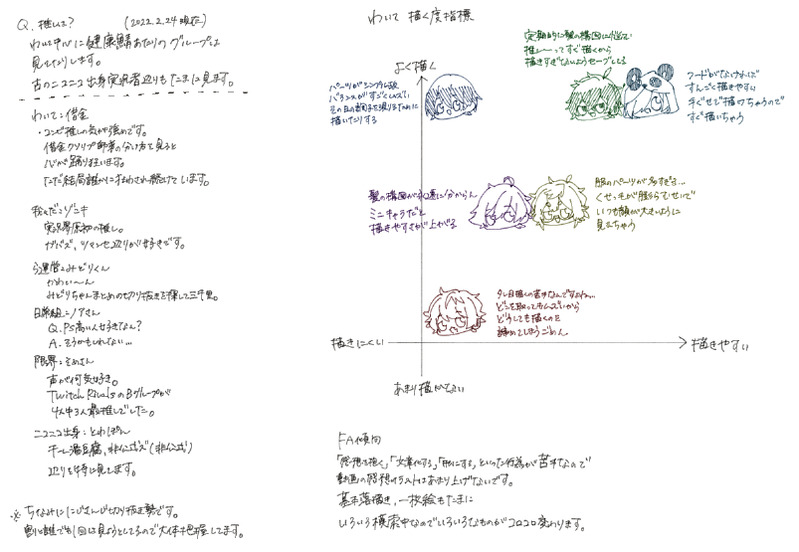 Q. 推しは? (2022.2.24現在)
わいわい中心に健康鯖あたりのグループは
見てたりします。
古のニコニコ出身実況者辺りもたまに見ます。
わいわい:借金
・コンビ推しの気が強めです。
借金クソリプ部業の分い方て見ると
心が踊り狂います。
ただ結局誰かに狂わされ続けています。
我々だ:ゾンキ
実況界原初の推し。
辺りが好きです。
らっだぁ運営:みどりくん
かわい〜ん
みどりちゃんまとめの切り抜きを探して三千里。
日常組:シノアさん
Q. PS高い人好きなん?
A. そうかもしれない…
限界:そめさん
声が何気好き。
Twitch RivalsのBグループが
4人中3人最推しでした。
ニコニコ出身:とりっぴぃ
湯豆腐、非公式ズ(非公式)
辺りを特に見てます。
※ ちなみににじさんじ切り抜き勢です。
割と誰でも1回は見ようとしてるので大体把握してます。
わいて 描く度指標
よく描く
あまり描かない
描きにくい
描きやすい
パーツがシンプル故
バランスがすごくムズい
その日の調子を測るために
描いたりする
定期的に髪の構図に悩む
推し〜ってすぐ描くから
描きすぎないようセーブしてる
フードがなければ
すんごく描きやすい
手ぐせで描けちゃうので
すぐ描いちゃう
髪の構図が永遠に分からん
ミニキャラだと
描きやすさが上がる
服のパーツが多すぎる…
くせっ毛が膨らむせいで
いつも顔が大きいように
見えちゃう
タレ目描くの苦手なんですよね…
どこを取ってもムズいから
どうしても描くのを
諦めてしまうごめん
FA傾向
「発想を描く」「文章化する」「形にする」といった行為が苦手なので
動画の感想イラストはあまり上げないです。
基本落描き、一枚絵もたまに
いろいろ模索中なのでいろいろなものがコロコロ変わります。